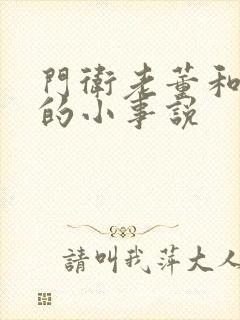 門衛老董和
的小事說
請叫我萍大人